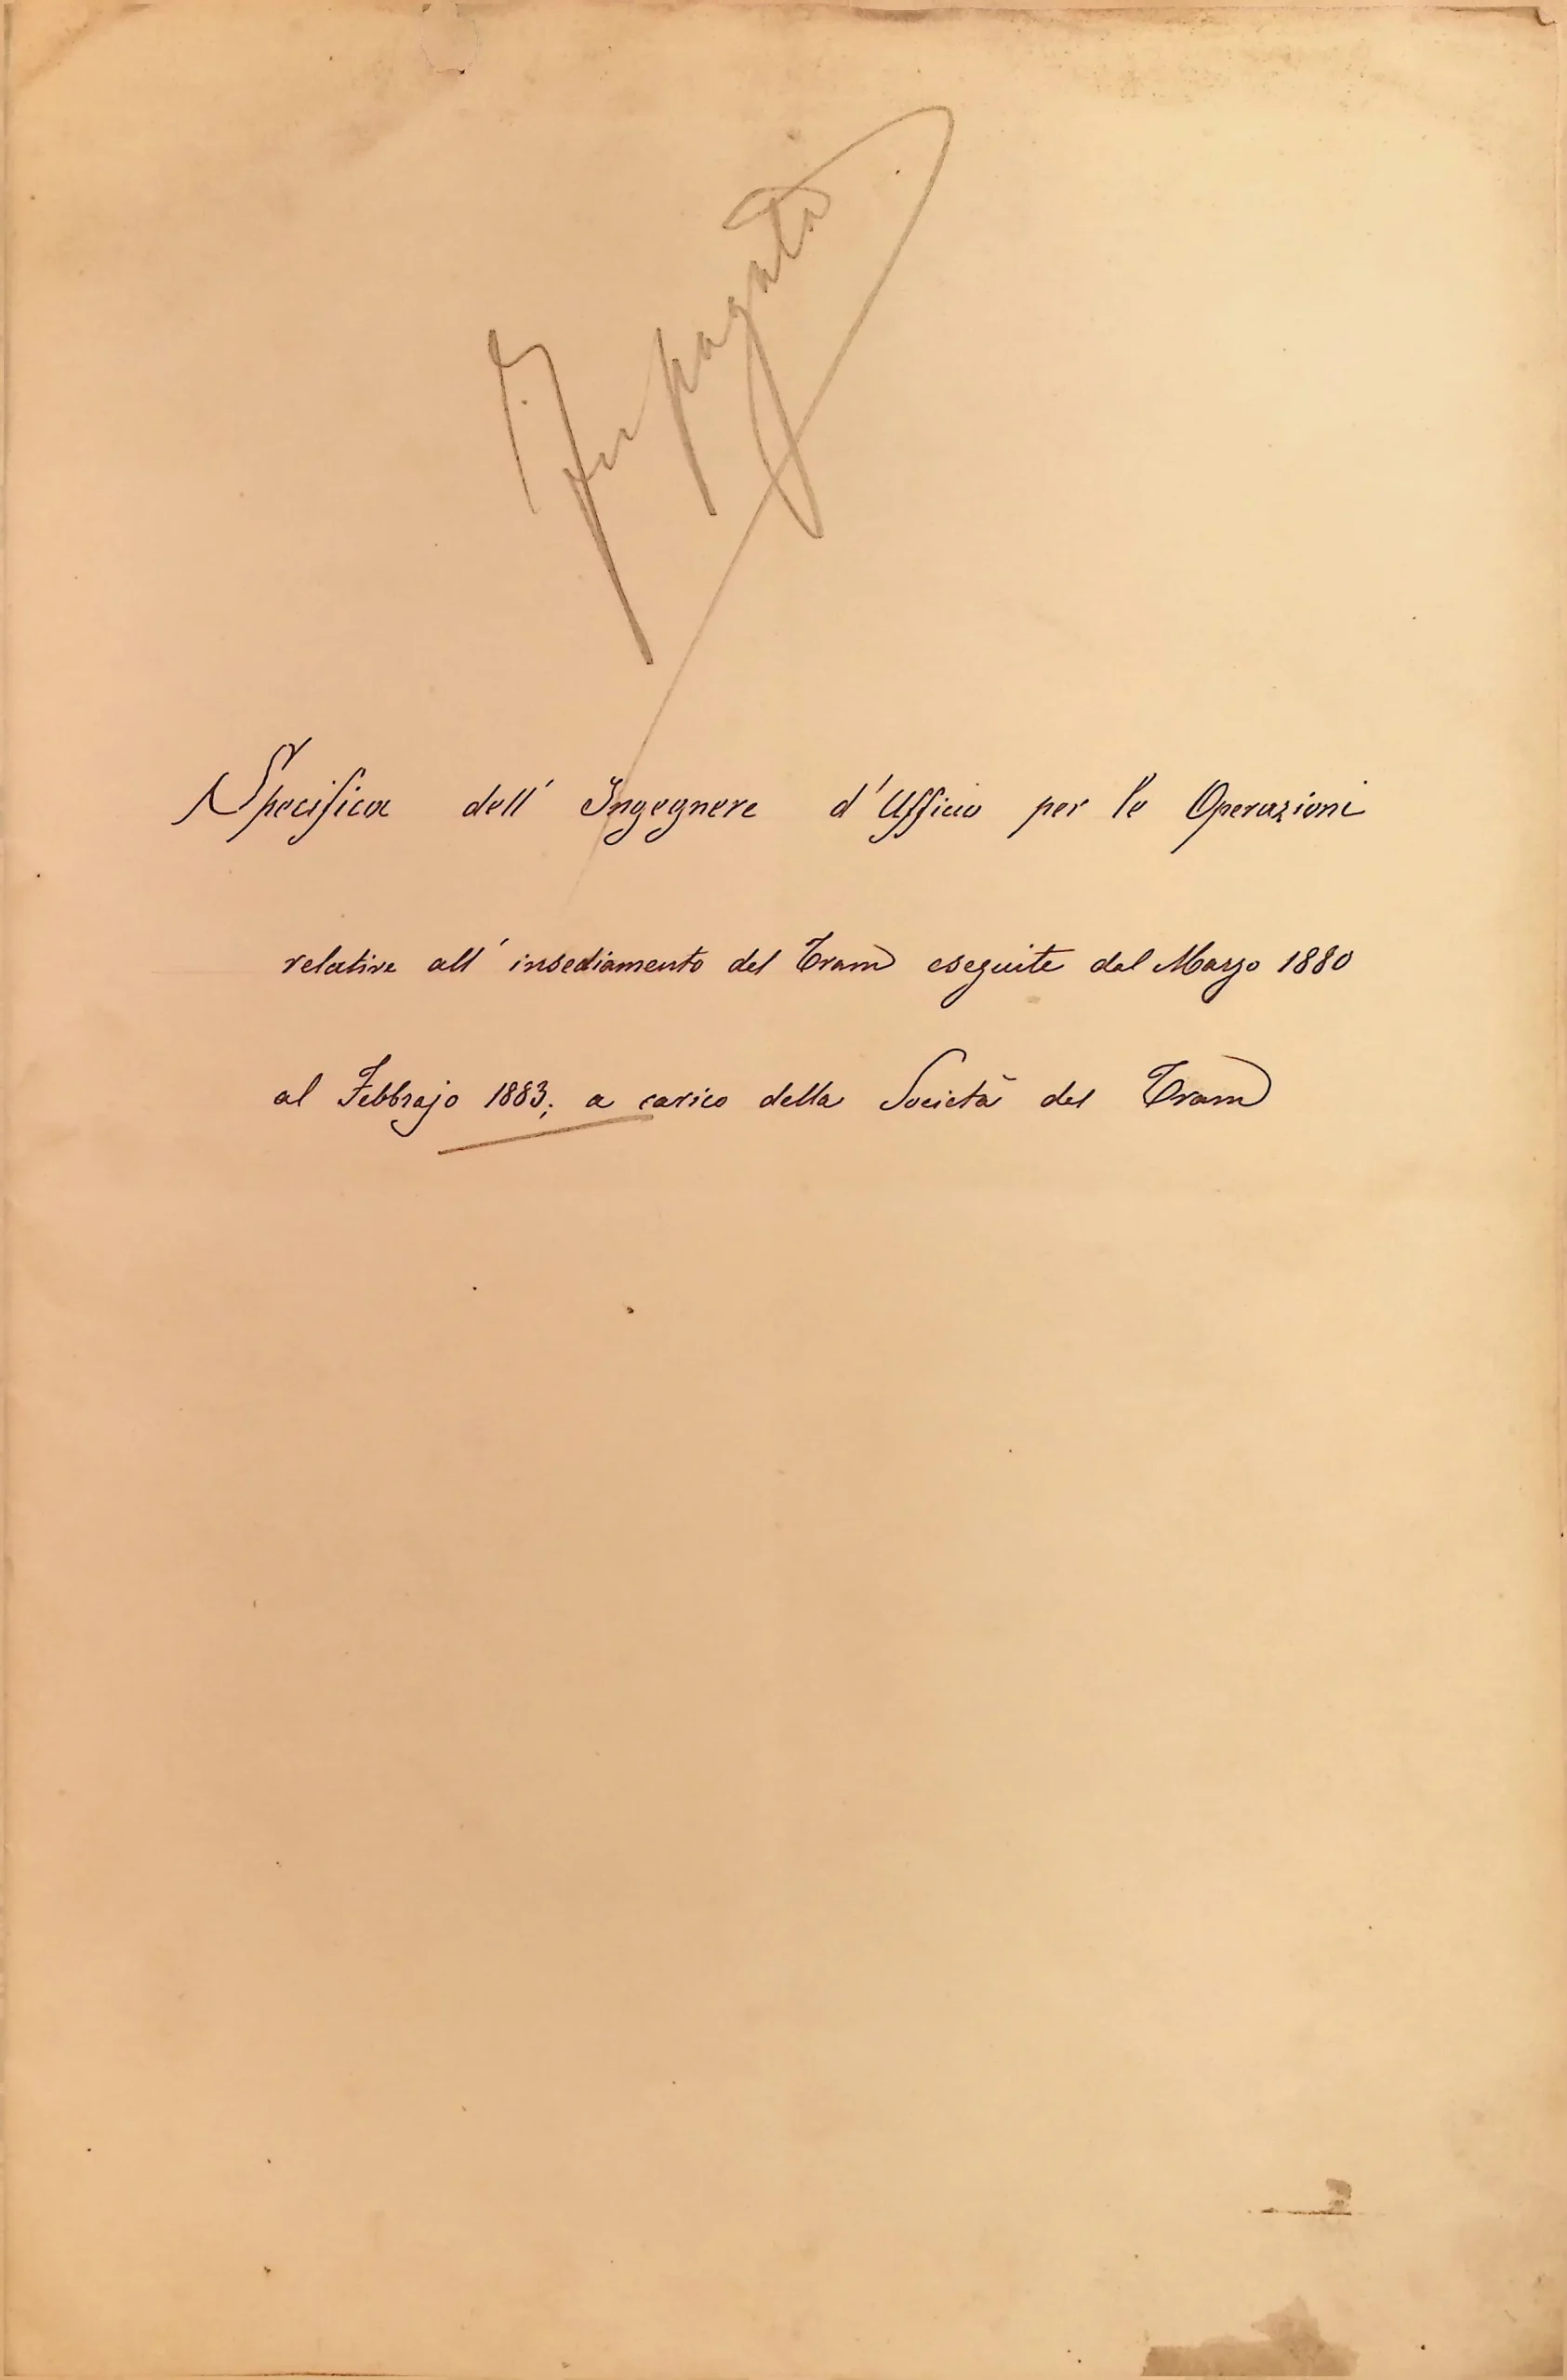 Impagato
Specifica dell' Ingegnere d'Ufficio per le Operazioni
relative all' insediamento del Tram eseguite dal Marzo 1880
al Febbrajo 1883; a carico della Società del Tram